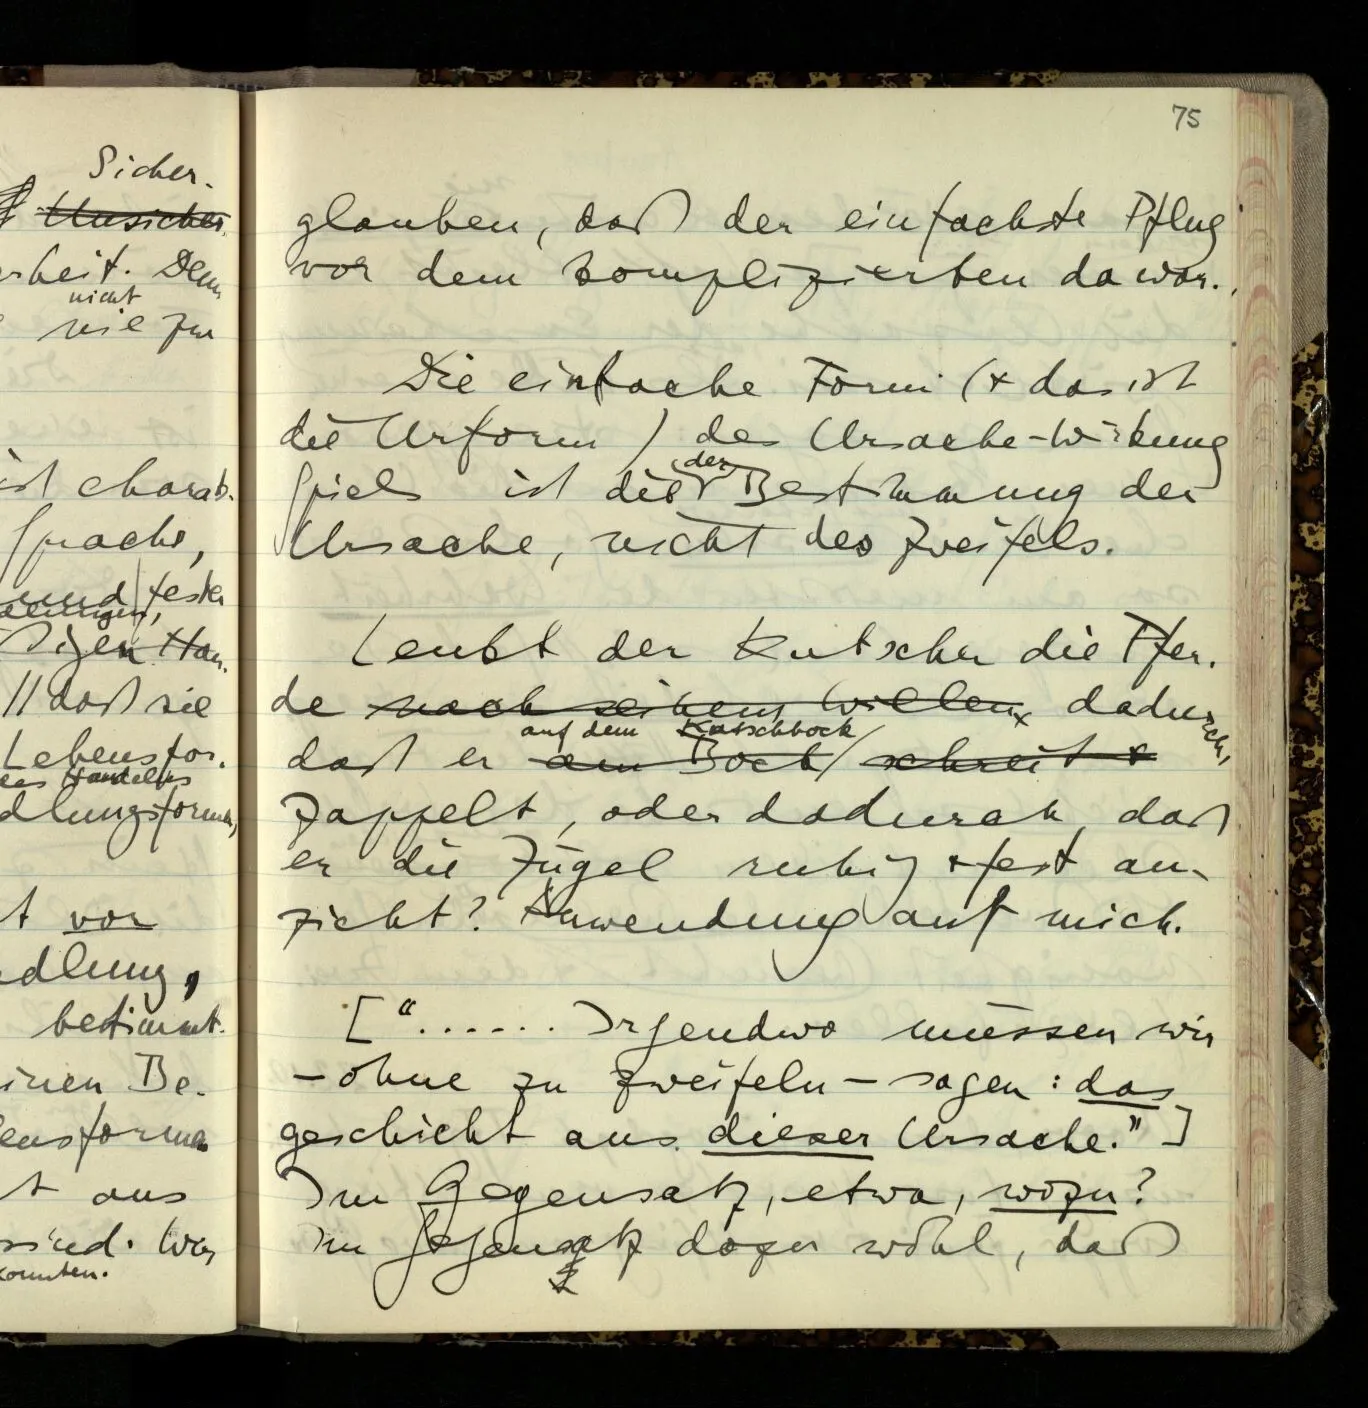 Sicher-
Unsicher
rheit. Denn
nicht
nie zu
ist charak-
Sprache,
und feste
daß sie
Lebensfor-
des Handelns
dlungsformen,
t vor
ndlung,
bestimmt.
inen Be-
ensforme
t aus
sind. Was
konnten.
75
glauben, daß der einfachste Pflug
vor dem komplizierten da war.
Die einfache Form (& das ist
die Urform) des Ursache-Wirkung
der
Spiels ist die Bestimmung der
Ursache, nicht des Zweifels.
Lenkt der Kutscher die Pfer-
de nach seinem Willen dadurch,
auf dem Kutschbock
daß er am Bock schreit &
zappelt, oder dadurch, daß
er die Zügel ruhig & fest an-
zieht? Anwendung auf mich.
[“...... Irgendwo müssen wir
– ohne zu zweifeln – sagen: das
geschieht aus dieser Ursache.”]
Im Gegensatz, etwa, wozu?
Im Gegensatz dazu wohl, daß